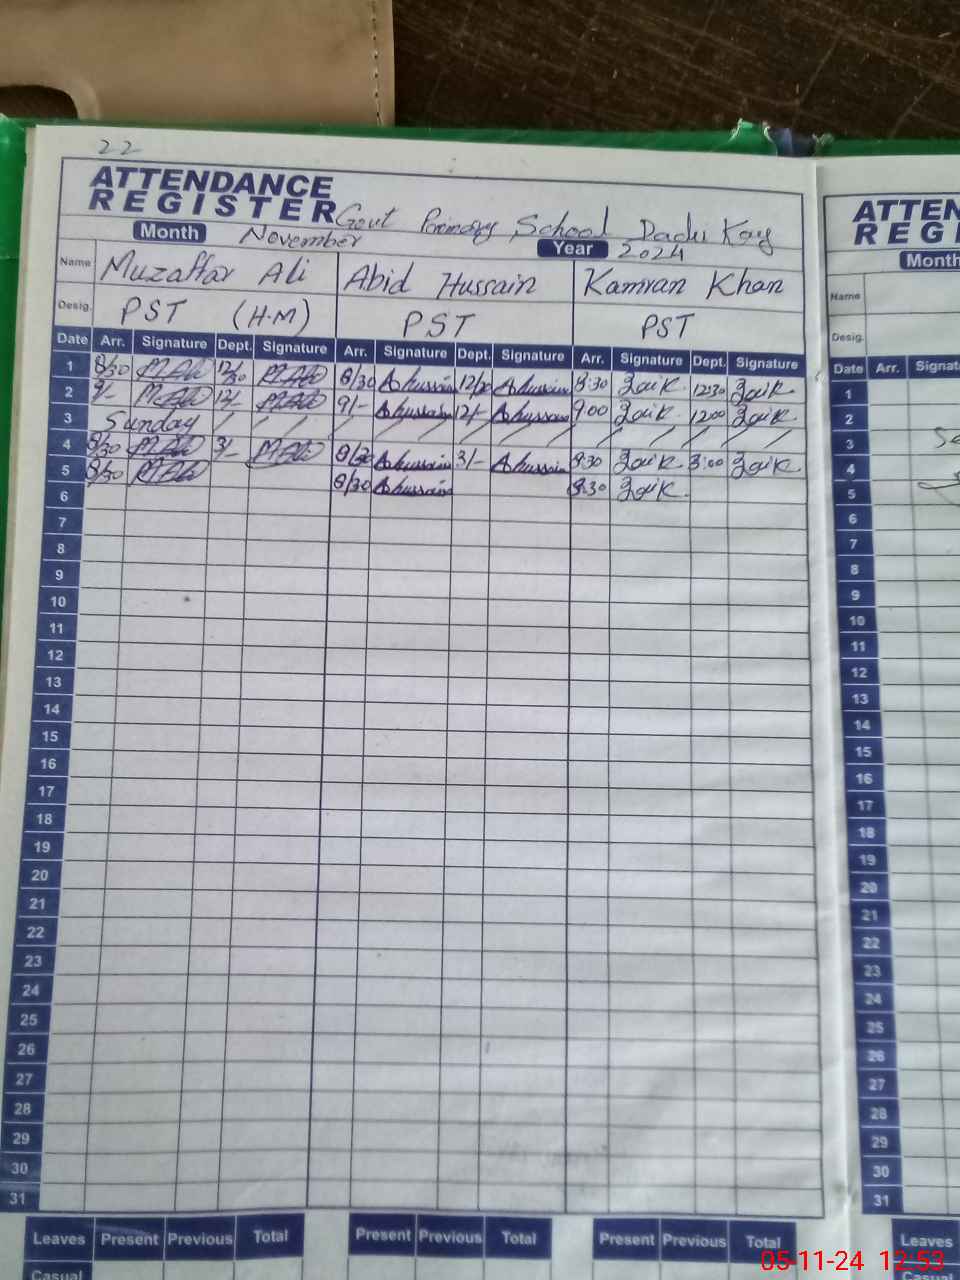 22
ATTENDANCE
REGISTER Govt Primary School Dadu Kay
Month November Year 2024
Name Muzaffar Ali Abid Hussain Kamran Khan
Desig. PST (H.M) PST PST
Date Arr. Signature Dept. Signature Arr. Signature Dept. Signature Arr. Signature Dept. Signature
1 8/30 M Ali 12/30 M Ali 8/30 Ahussain 12/30 Ahussain 8:30 12:30
2 9/- M Ali 12/- M Ali 9/- Ahussain 12/- Ahussain 9:00 12:00
3 Sunday / / / / / / / / / /
4 8/30 M Ali 3/- M Ali 8/30 Ahussain 3/- Ahussain 8:30 3:00
5 8/30 M Ali 8/30 Ahussain 8:30
6
7
8
9
10
11
12
13
14
15
16
17
18
19
20
21
22
23
24
25
26
27
28
29
30
31
Leaves Present Previous Total Present Previous Total Present Previous Total
Casual
ATTEN
REGI
Month
Name
Desig.
Date Arr. Signat
1
2
3
4
5
6
7
8
9
10
11
12
13
14
15
16
17
18
19
20
21
22
23
24
25
26
27
28
29
30
31
Leaves
Casual
05-11-24 12:53